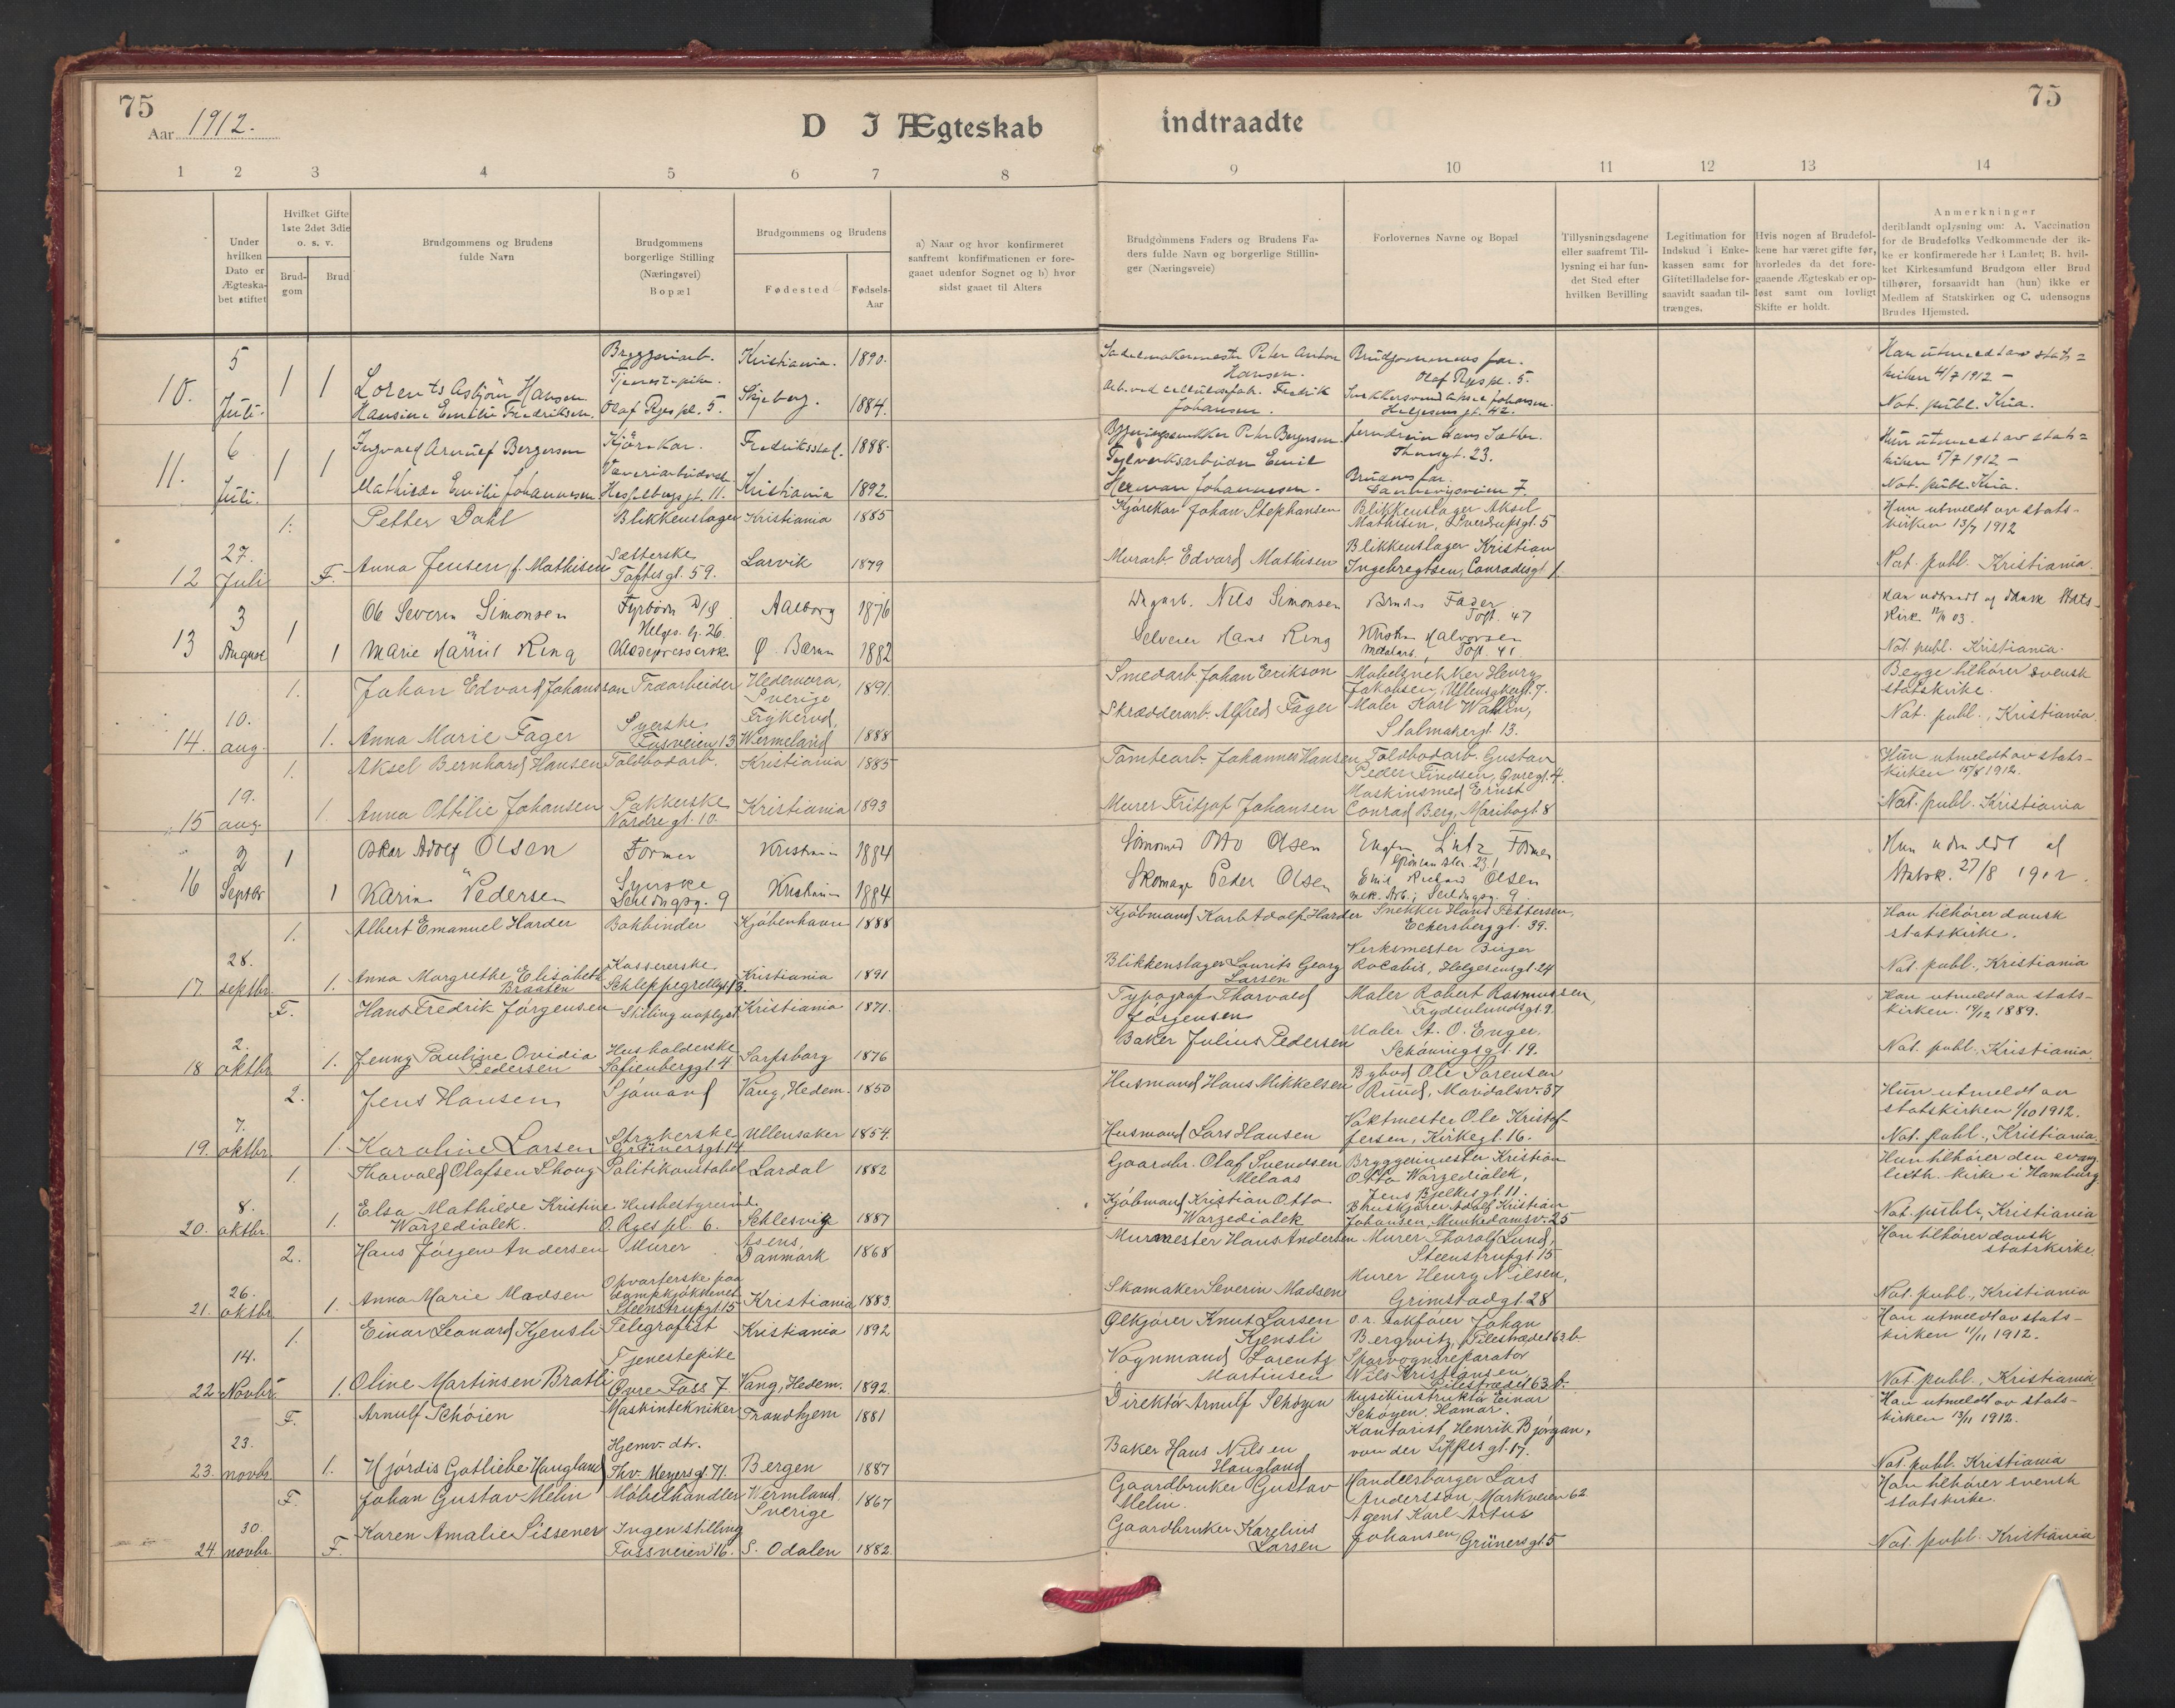 75
Aar 1912.
D I Ægteskab
indtraadte
75
1 2 3 4 5 6 7 8 9 10 11 12 13 14
Under hvilken Dato er Ægteskabet stiftet
Hvilket Gifte 1ste 2det 3die o. s. v.
Brudgom
Brud
Brudgommens og Brudens fulde Navn
Brudgommens borgerlige Stilling (Næringsvei) Bopæl
Brudgommens og Brudens
Fødested
Fødsels-Aar
a) Naar og hvor konfirmeret saafremt konfirmationen er foregaaet udenfor Sognet og b) hvor sidst gaaet til Alters
Brudgommens Faders og Brudens Faders fulde Navn og borgerlige Stillinger (Næringsveie)
Forlovernes Navne og Bopæl
Tillysningsdagene eller saafremt Tillysning ei har fundet Sted efter hvilken Bevilling
Legitimation for Indskud i Enkekassen samt for Giftetilladelse forsaavidt saadan tiltrænges.
Hvis nogen af Brudefolkene har været gifte før, hvorledes da det foregaaende Ægteskab er opløst samt om lovligt Skifte er holdt.
Anmerkninger
deriblandt oplysning om: A. Vaccination for de Brudefolks Vedkommende der ikke er konfirmerede her i Landet; B. hvilket Kirkesamfund Brudgom eller Brud tilhører, forsaavidt han (hun) ikke er Medlem af Statskirken og C. udensogns Brudes Hjemsted.
10. 5 Juli. 1 1
Lorents Asbjörn Hansen Bryggeriarb. Kristiania. 1890.
Hansine Emilie Fredriksen. Tjenestepike. Olaf Ryes pl. 5. Skjeberg. 1884.
Sadelmakermester Peter Anton Hansen. Brudgommens far. Olaf Ryes pl. 5.
Arb. ved cellulosefab. Fredrik Johansen. Johansen. Helgesens gt. 42.
Han utmeldt av statskirken 4/7 1912 –
Not. publ. Kria.
11. 6 Juli. 1 1
Ingvald Arnulf Bergersen Kjörekar. Fredriksstad. 1888.
Mathilde Emilie Johannesen Væveriarbeiderske Hesselbergs gt. 11. Kristiania 1892.
Peter Bergersen. Jerndreier Hans Sætter. Thorsgt. 23.
Teglverksarbeider Emil Herman Johannesen. Brudens far. Dannevigsveien 7.
Hun utmeldt av statskirken 5/7 1912 –
Not. publ. Kria.
12 27. Juli 1. F.
Petter Dahl Blikkenslager Kristiania 1885
Anna Jensen, f. Mathisen Sætterske Toftes gt. 59. Larvik 1879
Kjørekar Johan Stephansen Blikkenslager Aksel Mathisen, Sverdrupsgt. 5
Murarb. Edvard Mathisen Blikkenslager Kristian Ingebregtsen, Conradisgt. 1.
Hun utmeldt av statskirken 13/7 1912
Not. publ. Kristiania.
13 3 August 1 1
Ole Severin Simonsen Fyrbøder D/S Helges. g. 26. Aalborg 1876
Marie Ring Ø. Bærum 1882
Nils Simonsen Brudens Fader Toft. 47
Selveier Hans Ring Halvorsen Metalarb. Toft. 41.
Not. publ. Kristiania.
14. 10. aug. 1. 1.
Johan Edvard Johansson Træarbeider Hedemora, Sverige 1891.
Anna Marie Fager Syerske Fossveien 13 Frykerud, Wermeland 1888
Smedarb. Johan Erikson Møbelsnekker Henry Jakobsen, Ullensakergt. 7.
Skrædderarb. Alfred Fager Maler Karl Wallin, Stolmakergt. 13.
Begge tilhører svensk statskirke.
Not. publ., Kristiania.
15 19. aug. 1. 1.
Aksel Bernhard Hansen Toldbodarb. Kristiania 1885
Anna Ottilie Johansen Pakkerske Nordregt. 10. Kristiania 1893
Tomtearb. Johannes Hansen Toldbodarb. Gustav Peder Findsen, Øvregt. 4.
Murer Fritjof Johansen Maskinsmed Ernst Conrad Berg, Maribogt. 8
Hun utmeldt av statskirken 15/8 1912.
Not. publ. Kristiania
16 2 Septbr 1 1
Oskar Adolf Olsen Former Kristiania 1884
Karin Pedersen Syerske Seildugsg. 9 Kristiania 1884
Otto Olsen Lutz Former
Skomager Peder Olsen Emil Richard Olsen mek. Arb., Seildugsg. 9.
Hun udmeldt af Statsk. 27/8 1912.
17. 28. septbr. 1. 1.
Albert Emanuel Harder Bokbinder Kjøbenhavn 1888
Anna Margrethe Elisabeth Braaten Kassererske Schleppegrellsgt 13. Kristiania 1891
Kjøbmand Karl Adolf Harder Snekker Hans Pettersen, Eckersberggt. 39.
Blikkenslager Laurits Georg Larsen Verksmester Birger Rocabis, Helgesensgt. 24
Han tilhører dansk statskirke.
Not. publ., Kristiania
18 2. oktbr. F. 1.
Hans Fredrik Jørgensen Stilling uoplyst Kristiania 1871.
Jenny Pauline Ovidia Pedersen Husholderske Sofienberggt. 4 Sarpsborg 1876
Typograf Thorvald Jørgensen Maler Robert Rasmussen, Frydenlundsgt. 9.
Baker Julius Pedersen Maler A. O. Enger. Schøningsgt. 19.
Han utmeldt av statskirken. 17/12 1889.
Not. publ. Kristiania
19. 7. oktbr. 2. 1.
Jens Hansen Sjømand Vang, Hedem. 1850
Karoline Larsen Strykerske Grünersgt 14 Ullensaker 1854.
Husmand Hans Mikkelsen Bybud Ole Sørensen Ruud, Maridalsv. 37
Husmand Lars Hansen Vaktmester Ole Kristoffersen, Kirkegt. 16.
Hun utmeldt av statskirken 1/10 1912.
Not. publ., Kristiania.
20. 8. oktbr. 1. 1.
Thorvald Olafsen Skoug Politikonstabel Lardal 1882
Elsa Mathilde Kristine Warzedialek. Husbestyrerinde O. Ryes pl. 6. Schlesvig 1887
Gaardbr. Olaf Svendsen Melaas Bryggerimester Kristian Otto Warzedialek, Jens Bjelkes gt. 11.
Kjøbmand Kristian Otto Warzedialek Adolf Kristian Johansen, Munkedamsv. 25
Hun tilhører den evang luth. kirke i Hamburg
Not. publ., Kristiania
21. 26. oktbr. 2. 1.
Hans Jørgen Andersen Murer Asens, Danmark 1868
Anna Marie Madsen Opvarterske paa dampkjøkkenet Steenstrupgt. 15 Kristiania 1883.
Murmester Hans Andersen Murer Thoralf Lund, Steenstrupgt. 15
Skomaker Severin Madsen Murer Henry Nilsen, Grimstadgt. 28
Han tilhører dansk statskirke
Not. publ., Kristiania
22 14. Novbr. 1. 1.
Einar Leonard Kjensli Telegrafist Kristiania 1892
Oline Martinsen Bratli Tjenestepike Øvre Foss 7 Vang, Hedem. 1892.
Ølkjører Knut Larsen Kjensli o.r. sakfører Johan Bergwitz, Pilestrædet 63 b
Vognmand Lorentz Martinsen Sporvognsreparatør Nils Kristiansen, Pilestrædet 63 b.
Han utmeldt av statskirken 11/11 1912.
Not. publ., Kristiania
23. 23. novbr. F. 1.
Arnulf Schøien Maskintekniker Trondhjem 1881
Hjørdis Gotliebe Haugland Hjemv. dtr. Thv. Meyersgt. 71. Bergen 1887
Direktør Arnulf Schøyen Musikinstruktør Einar Schøyen, Hamar.
Baker Hans Nilsen Haugland Kontorist Henrik Bjørgan, von der Lippes gt. 17.
Han utmeldt av statskirken 13/11 1912.
Not. publ. Kristiania
24 30. novbr. F. F.
Johan Gustav Melin Møbelhandler Wermland. Sverige 1867
Karen Amalie Sissener Ingen stilling Fossveien 16. S. Odalen 1882.
Gaardbruker Gustav Melin. Handelsborger Lars Andersson, Markveien 62.
Gaardbruker Karelius Larsen Agent Karl Artus Johansen, Grünersgt. 5
Han tilhører svensk statskirke.
Not. publ. Kristiania